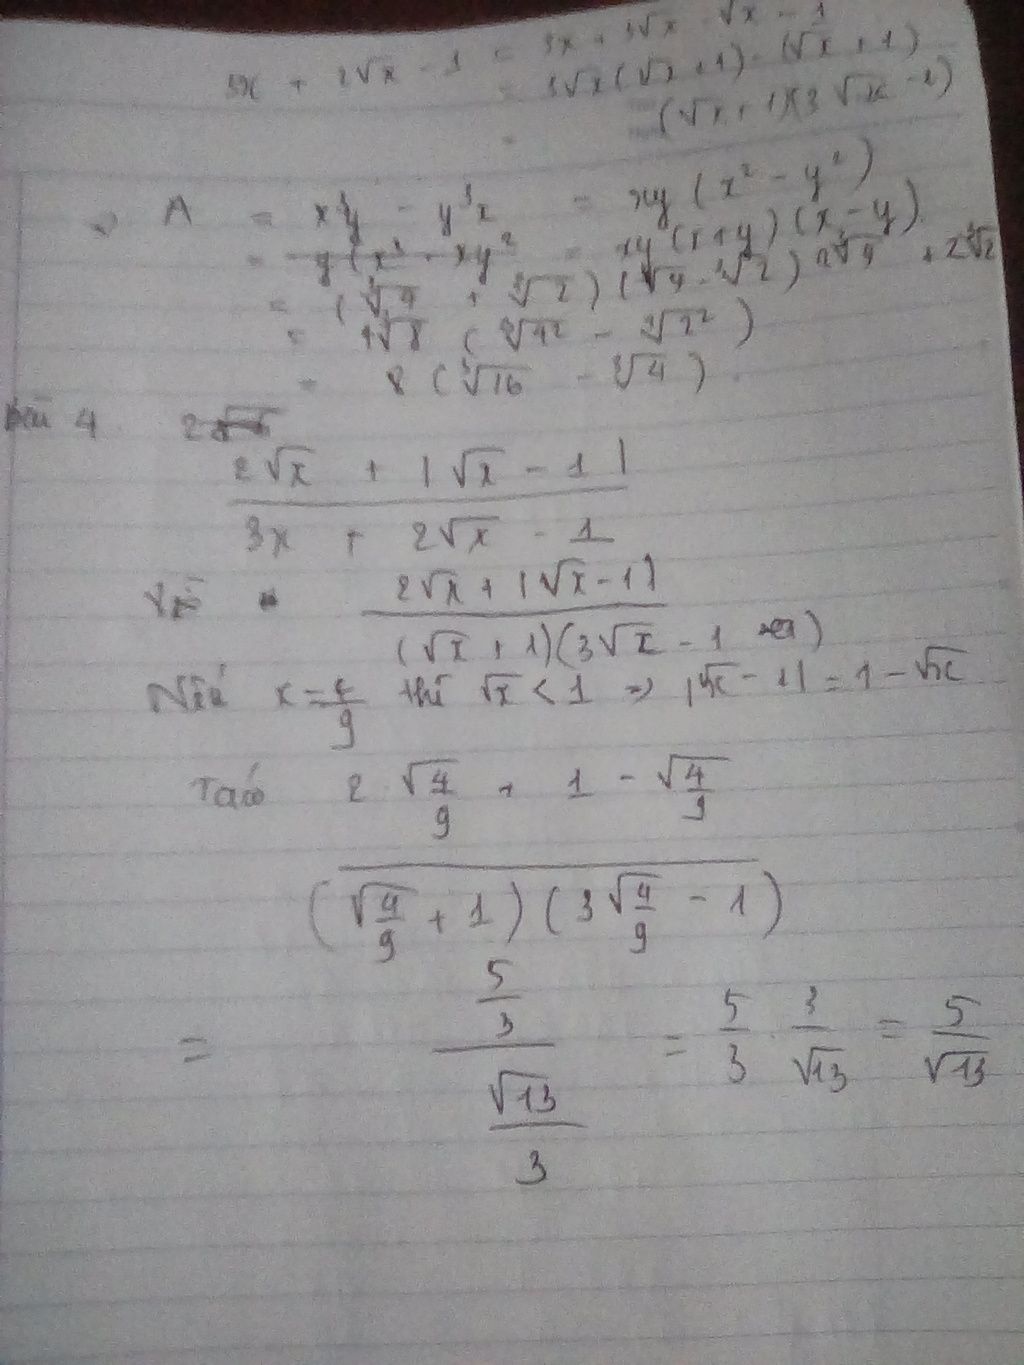 3x + 2√x - 1 = 3x + 3√x - √x - 1
= 3√x(√x + 1) - (√x + 1)
= (√x + 1)(3√x - 1)
A = x³y - y³x = xy(x² - y²)
= xy(x+y)(x-y)
= (∛4 + ∛2)(∛4 - ∛2) + 2∛2
(∛4² - ∛2²)
= 8(∛16 - ∛4)
bài 4
2√x + |√x - 1|
3x + 2√x - 1
2√x + |√x - 1|
(√x + 1)(3√x - 1)
x = 4/9 thì √x < 1 => |√x - 1| = 1 - √x
Ta có 2√(4/9) + 1 - √(4/9)
(√(4/9) + 1)(3√(4/9) - 1)
= (5/3)/(√13/3) = 5/3 · 3/√13 = 5/√13